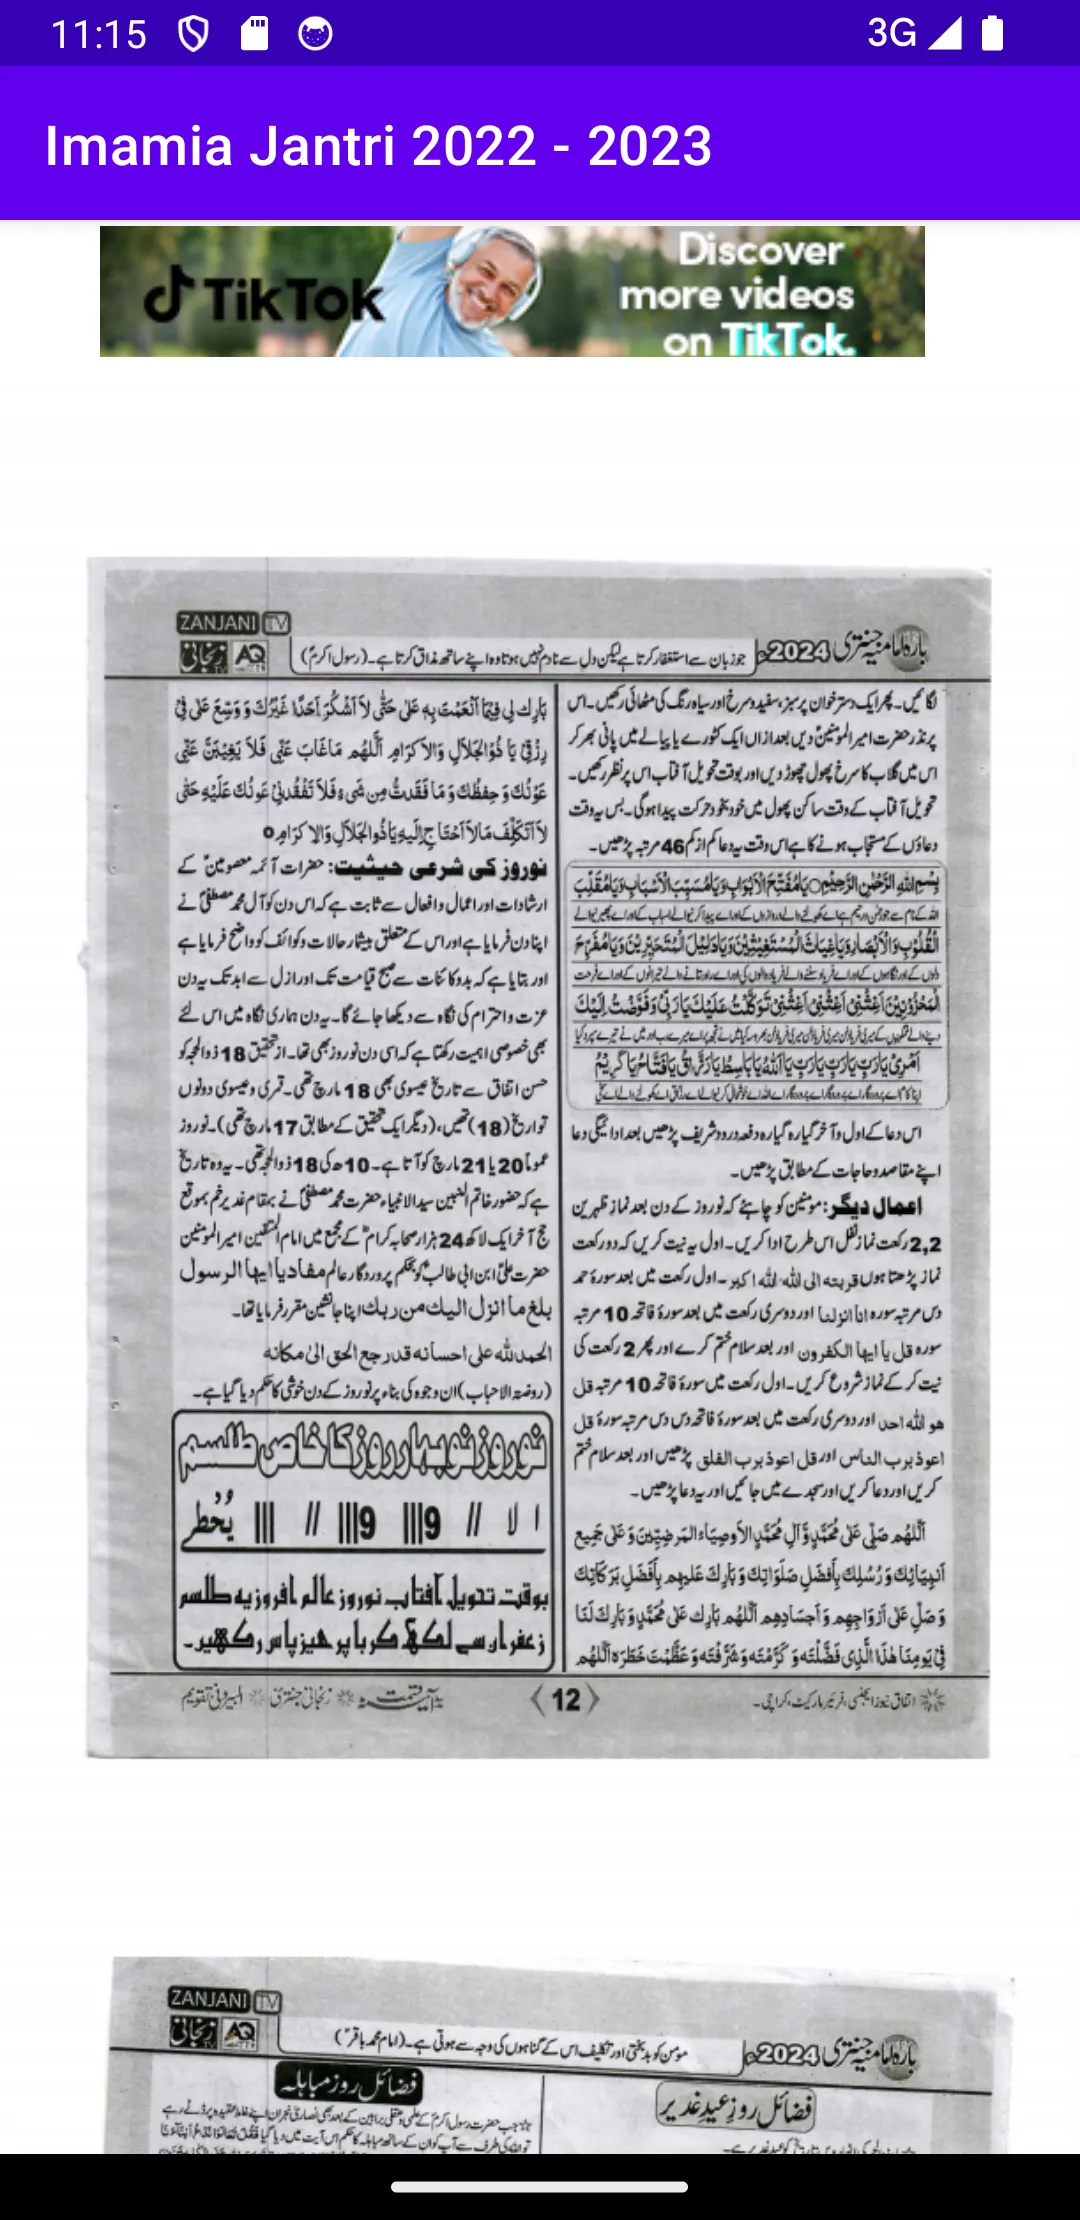 11:15
3G
Imamia Jantri 2022 - 2023
TikTok
Discover
more videos
on TikTok.
ZANJANI TV
زنجانی AQ
جو زبان سے استغفار کرتا ہے لیکن دل سے نادم نہیں ہوتا وہ اپنے ساتھ مذاق کرتا ہے۔ (رسول اکرمؐ)
بارہ امامیہ جنتری 2024ء
لگائیں۔ پھر ایک دسترخوان پر سبز، سفید و سرخ اور سیاہ رنگ کی مٹھائی رکھیں۔ اس
پر نذر حضرت امیر المومنینؑ دیں بعد ازاں ایک کٹورے یا پیالے میں پانی بھر کر
اس میں گلاب کا سرخ پھول چھوڑ دیں اور بوقت تحویل آفتاب اس پر نظر رکھیں۔
تحویل آفتاب کے وقت ساکن پھول میں خود بخود حرکت پیدا ہوگی۔ بس یہ وقت
دعاؤں کے مستجاب ہونے کا ہے اس وقت یہ دعا کم از کم 46 مرتبہ پڑھیں۔
بِسْمِ اللهِ الرَّحْمٰنِ الرَّحِيْمِ يَا مُفَتِّحَ الْاَبْوَابِ وَ يَا مُسَبِّبَ الْاَسْبَابِ وَ يَا مُقَلِّبَ
الْقُلُوْبِ وَ الْاَبْصَارِ وَ يَا غِيَاثَ الْمُسْتَغِيْثِيْنَ وَ يَا دَلِيْلَ الْمُتَحَيِّرِيْنَ وَ يَا مُفَرِّحَ
الْمَحْزُوْنِيْنَ اَغِثْنِيْ اَغِثْنِيْ اَغِثْنِيْ تَوَكَّلْتُ عَلَيْكَ يَا رَبِّيْ وَ فَوَّضْتُ اِلَيْكَ
اَمْرِيْ يَا رَبِّ يَا رَبِّ يَا رَبِّ يَا اَللهُ يَا بَاسِطُ يَا رَزَّاقُ يَا فَتَّاحُ يَا كَرِيْمُ
اس دعا کے اول و آخر گیارہ گیارہ دفعہ درود شریف پڑھیں بعد ادائیگی دعا
اپنے مقاصد و حاجات کے مطابق پڑھیں۔
اعمال دیگر: مومنین کو چاہئے کہ نوروز کے دن بعد نماز ظہرین
2,2 رکعت نماز نفل اس طرح ادا کریں۔ اول یہ نیت کریں کہ دو رکعت
نماز پڑھتا ہوں قربتہ الی اللہ اللہ اکبر۔ اول رکعت میں بعد سورۃ حمد
دس مرتبہ سورہ انا انزلنا اور دوسری رکعت میں بعد سورۃ فاتحہ 10 مرتبہ
سورہ قل یا ایھا الکفرون اور بعد سلام ختم کرے اور پھر 2 رکعت کی
نیت کر کے نماز شروع کریں۔ اول رکعت میں سورۃ فاتحہ 10 مرتبہ قل
ھو اللہ احد اور دوسری رکعت میں بعد سورۃ فاتحہ دس دس مرتبہ سورۃ قل
اعوذ برب الناس اور قل اعوذ برب الفلق پڑھیں اور بعد سلام ختم
کریں اور دعا کریں اور سجدے میں جائیں اور یہ دعا پڑھیں۔
اَللّٰهُمَّ صَلِّ عَلٰى مُحَمَّدٍ وَّ آلِ مُحَمَّدٍ الْاَوْصِيَاءِ الْمَرْضِيِّيْنَ وَ عَلٰى جَمِيْعِ
اَنْبِيَائِكَ وَ رُسُلِكَ بِاَفْضَلِ صَلَوَاتِكَ وَ بَارِكْ عَلَيْهِمْ بِاَفْضَلِ بَرَكَاتِكَ
وَ صَلِّ عَلٰى اَرْوَاحِهِمْ وَ اَجْسَادِهِمْ اَللّٰهُمَّ بَارِكْ عَلٰى مُحَمَّدٍ وَ بَارِكْ لَنَا
فِيْ يَوْمِنَا هٰذَا الَّذِيْ فَضَّلْتَهُ وَ كَرَّمْتَهُ وَ شَرَّفْتَهُ وَ عَظَّمْتَ خَطَرَهُ اَللّٰهُمَّ
بَارِكْ لِيْ فِيْمَا اَنْعَمْتَ بِهِ عَلَيَّ حَتّٰى لَا اَشْكُرَ اَحَدًا غَيْرَكَ وَ وَسِّعْ عَلَيَّ فِيْ
رِزْقِيْ يَا ذُو الْجَلَالِ وَ الْاِكْرَامِ اَللّٰهُمَّ مَا غَابَ عَنِّيْ فَلَا يَغِيْبَنَّ عَنِّيْ
عَوْنُكَ وَ حِفْظُكَ وَ مَا فَقَدْتُ مِنْ شَيْءٍ فَلَا تَفْقُدْنِيْ عَوْنَكَ عَلَيْهِ حَتّٰى
لَا اَتَكَلَّفَ مَا لَا اَحْتَاجُ اِلَيْهِ يَا ذُو الْجَلَالِ وَ الْاِكْرَامِ
نوروز کی شرعی حیثیت: حضرات آئمہ معصومینؑ کے
ارشادات اور اعمال و افعال سے ثابت ہے کہ اس دن کو آل محمد مصطفیٰؐ نے
اپنا دن فرمایا ہے اور اس کے متعلق بیشار حالات و کوائف کو واضح فرمایا ہے
اور بتایا ہے کہ بدو کائنات سے صبح قیامت تک اور ازل سے ابد تک یہ دن
عزت و احترام کی نگاہ سے دیکھا جائے گا۔ یہ دن ہماری نگاہ میں اس لئے
بھی خصوصی اہمیت رکھتا ہے کہ اسی دن نوروز بھی تھا۔ از تحقیق 18 ذوالحجہ کو
حسن اتفاق سے تاریخ عیسوی بھی 18 مارچ تھی۔ قمری و عیسوی دونوں
تواریخ (18) تھیں، (دیگر ایک تحقیق کے مطابق 17 مارچ تھی)۔ نوروز
عموماً 20 یا 21 مارچ کو آتا ہے۔ 10ھ کی 18 ذوالحجہ تھی۔ یہ وہ تاریخ
ہے کہ حضور خاتم النبین سید الانبیاء حضرت محمد مصطفیٰؐ نے بمقام غدیر خم بموقع
حج آخر ایک لاکھ 24 ہزار صحابہ کرامؓ کے مجمع میں امام المتقین امیر المومنین
حضرت علیؑ ابن ابی طالبؑ کو بحکم پروردگار عالم مفاد یا ایھا الرسول
بلغ ما انزل الیک من ربک اپنا جانشین مقرر فرمایا تھا۔
الحمد للہ علی احسانہ قد رجع الحق الیٰ مکانہ
(روضۃ الاحباب) ان وجوہ کی بناء پر نوروز کے دن خوشی کا حکم دیا گیا ہے۔
نوروز نوبہار روز کا خاص طلسم
بوقت تحویل آفتاب نوروز عالم افروز یہ طلسم
زعفران سے لکھ کر با پرھیز پاس رکھیں۔
اتفاق نیوز ایجنسی، فریئر مارکیٹ، کراچی۔
12
زنجانی جنتری
البیرونی تقویم
ZANJANI TV
زنجانی AQ
مومن کو بدبختی اور تکلیف اس کے گناہوں کی وجہ سے ہوتی ہے۔ (امام محمد باقرؑ)
بارہ امامیہ جنتری 2024ء
فضائل روز عید غدیر
فضائل روز مباہلہ